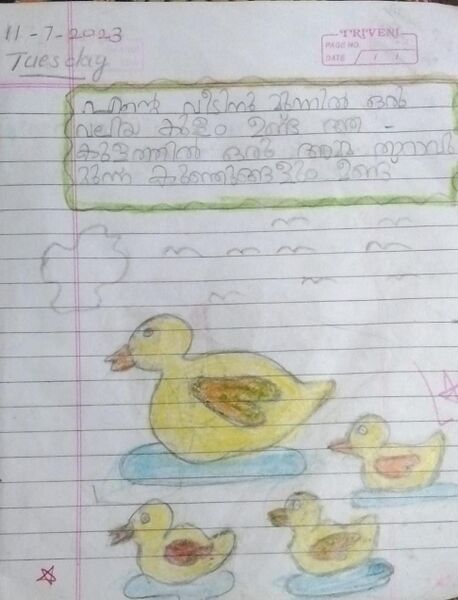 11-7-2023
Tuesday
TRIVENI
PAGE NO.
DATE / /
എന്റെ വീടിനു മുന്നിൽ ഒരു
വലിയ കുളം ഉണ്ട് ആ -
കുളത്തിൽ ഒരു അമ്മ താറാവും
മൂന്ന് കുഞ്ഞുങ്ങളും ഉണ്ട്